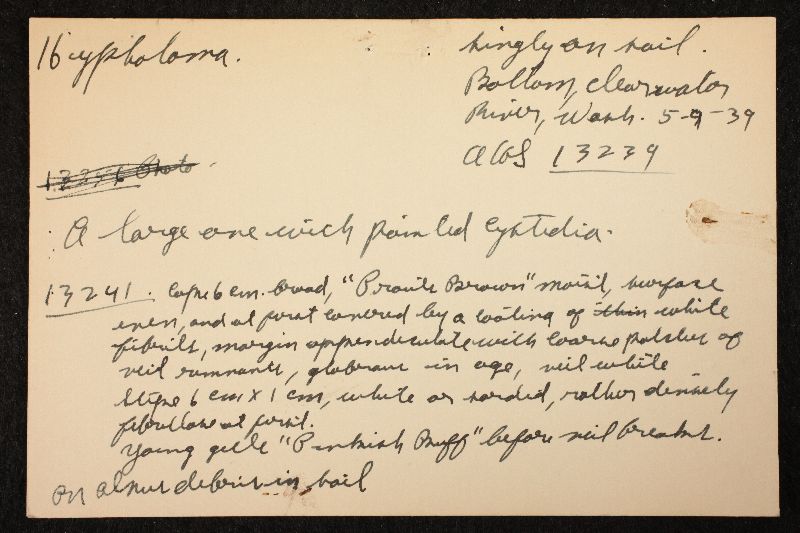 Hypholoma.
singly on soil.
Bottom, Clearwater
River, Wash. 5-9-39
AHS 13239
13246 Photo
A large one with pointed cystidia.
13241. Caps 6 cm. broad, "Prouts Brown" moist, surface
even, and at first covered by a coating of thin white
fibrils, margin appendiculate with coarse patches of
veil remnants, glabrous in age, veil white
Stipe 6 cm x 1 cm, white or sordid, rather densely
fibrillose at first.
Young gills "Pinkish Buff" before veil breaks.
On alnus debris in soil